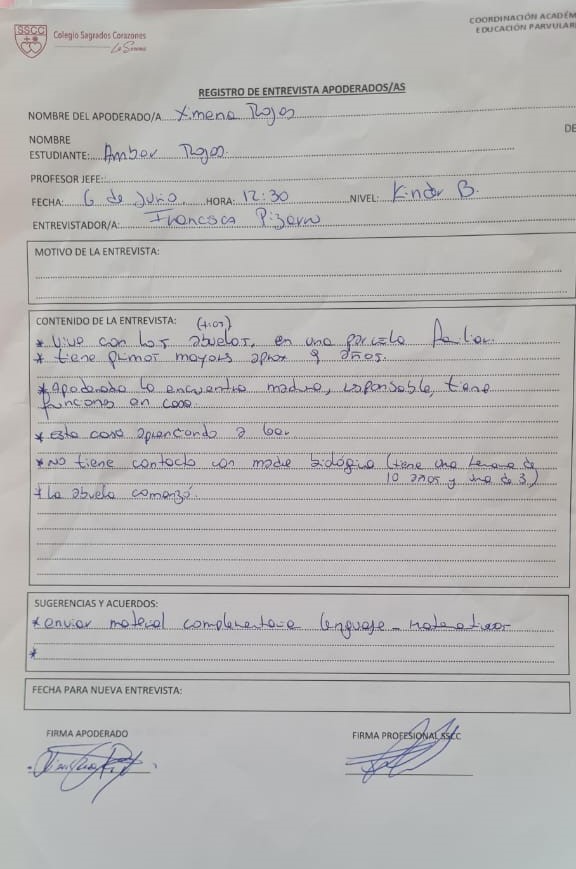 SSCC
Colegio Sagrados Corazones
La Serena
COORDINACIÓN ACADÉM
EDUCACIÓN PARVULAR
REGISTRO DE ENTREVISTA APODERADOS/AS
NOMBRE DEL APODERADO/A Ximena Rojas
DE
NOMBRE
ESTUDIANTE: Amber Rojas.
PROFESOR JEFE:
FECHA: 6 de Junio. HORA: 12:30 NIVEL: Kinder B.
ENTREVISTADOR/A: Francisca Pizarro
MOTIVO DE LA ENTREVISTA:
CONTENIDO DE LA ENTREVISTA: (tios)
* Vive con los abuelos, en una parcela familiar.
* tiene primos mayores aprox 9 años.
* Apoderada la encuentra madura, responsable, tiene
funciones en casa.
* esta casa aprendiendo a leer
* NO tiene contacto con madre biológica (tiene una hermana de
10 años y una de 3)
* La abuela comenzó.
SUGERENCIAS Y ACUERDOS:
* enviar material complementario lenguaje - matematicas
*
FECHA PARA NUEVA ENTREVISTA:
FIRMA APODERADO
FIRMA PROFESIONAL SSCC